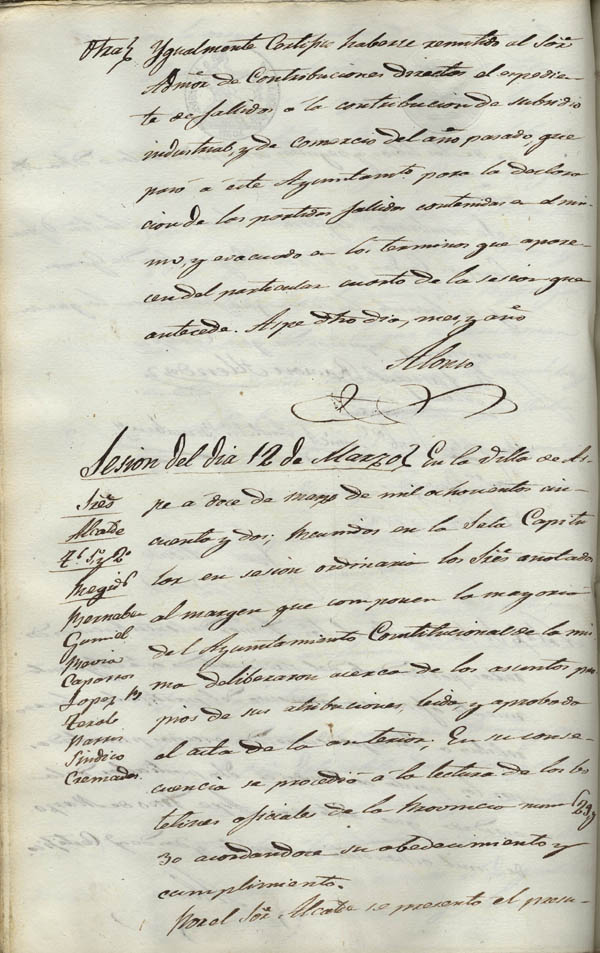 Otra} Ygualmente Certifico haberse remitido al Sor.
Admor. de Contribuciones directas el espedien-
te de fallidos a la contribucion de subsidio
industrial, y de comercio del año pasado, que
pasó a este Ayuntamto. para la declara-
cion de las partidas fallidas contenidas en el mis-
mo, y evacuado en los terminos que apare-
cen del particular cuarto de la sesion que
antecede. Aspe dho dia, mes, y año
Alonso
Sesion del dia 12 de Marzo} En la Villa de As-
pe a doce de marzo de mil ochocientos cin-
cuenta y dos; Reunidos en la Sala Capitu
lar en sesion ordinaria los Sres. anotados
al margen que componen la mayoria
del Ayuntamiento Constitucional de la mis
ma deliberaron acerca de los asuntos pro
pios de sus atribuciones, leida y aprobada
el acta de la anterior; En su conse-
cuencia se procedió a la lectura de los bo
letines oficiales de la Provincia num. 29 y
30 acordandose su obedecimiento y
cumplimiento.
Por el Sor. Alcalde se presento el presu-
Sres.
Alcalde
Ts. 1o. y 2o.
Regids.
Bernabeu
Gumiel
Caparros
Lopez
Terol
Sindico
Cremades